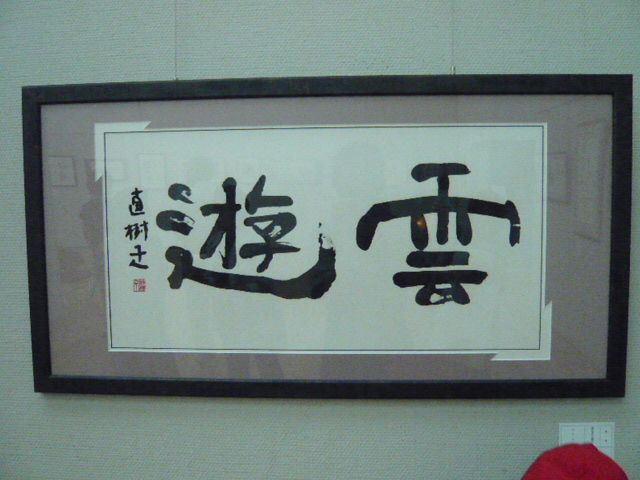 雲遊
直樹